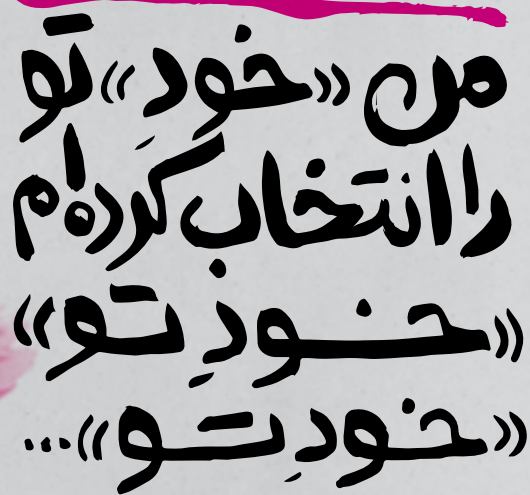 من «خودِ» تو
را انتخاب کرده‌ام
«خودِ تو»
«خودِ تو»...